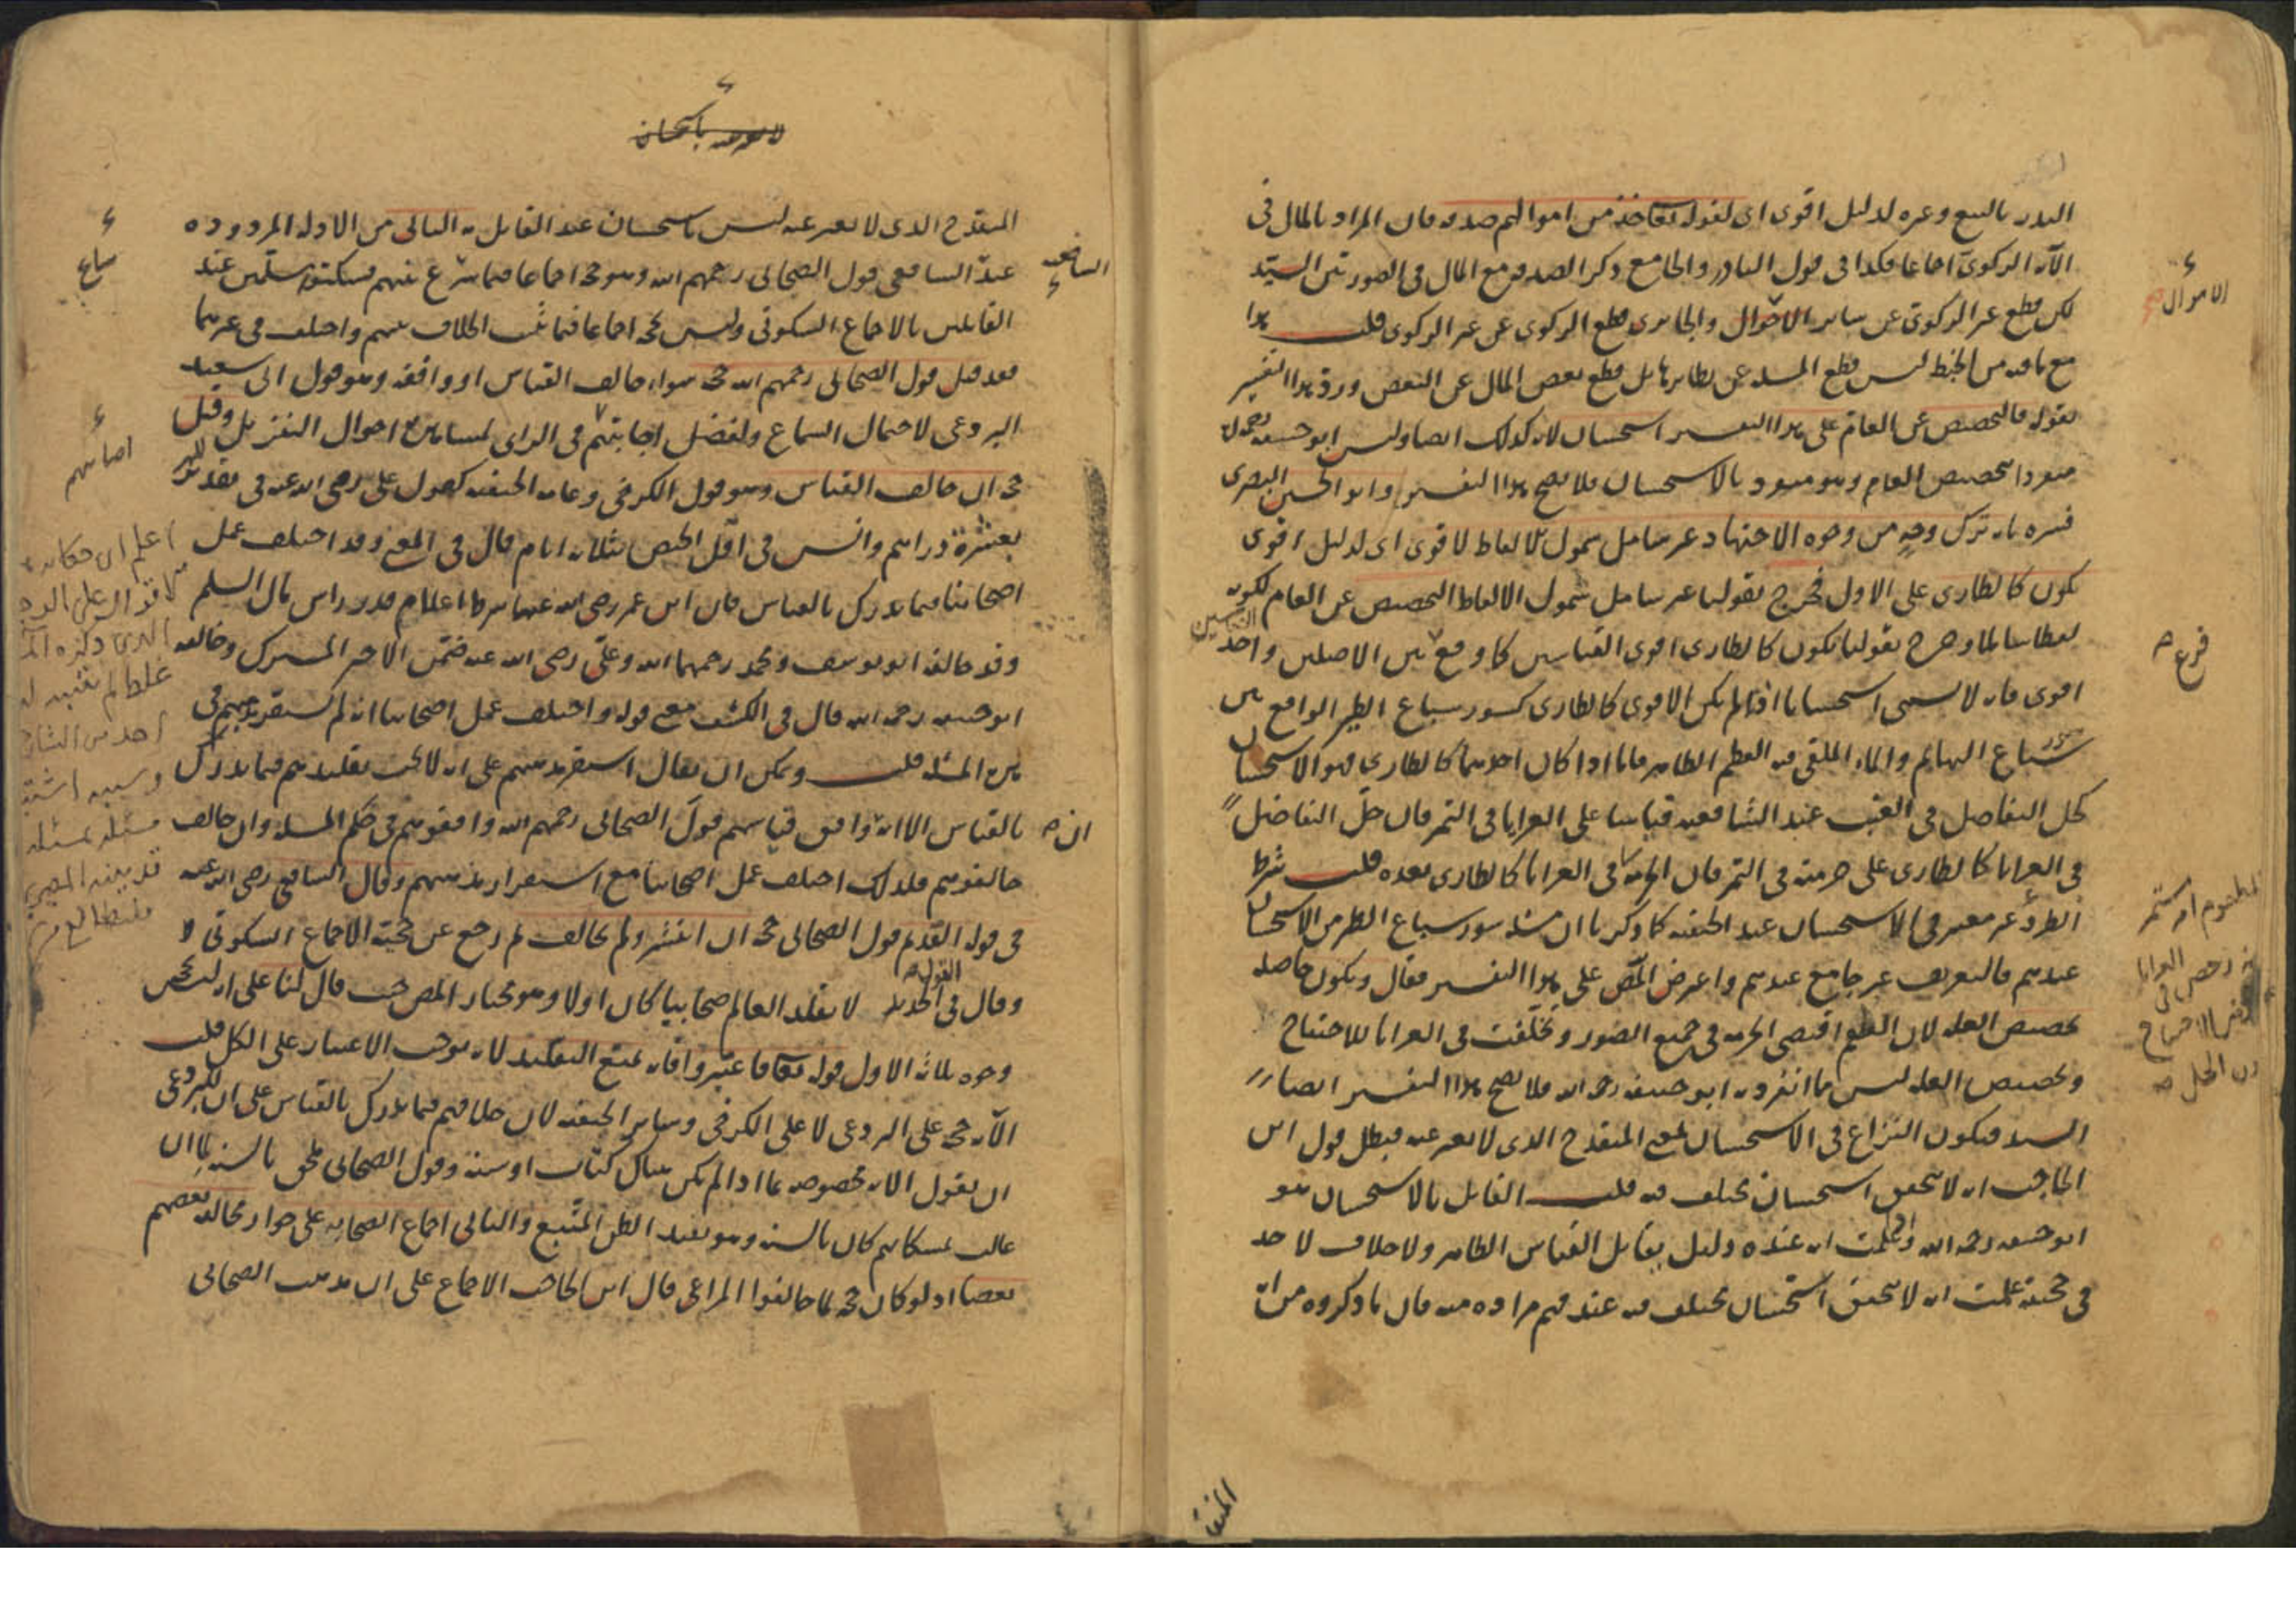 النذر بالبيع وغيره لدليل اقوى اى لقوله تعا خذ من اموالهم صدقه فان المراد بالمال فى
الآيه الزكوى اجماعا فكذا فى قول الناذر والجامع ذكر الصدقه مع المال فى الصورتين السيّد
لكن قطع غير الزكوى عن ساير الاموال والجابرى قطع الزكوى عن غير الزكوى قلت هذا
مع ما فيه من الخبط ليس قطع المسله عن نظايرها بل قطع بعض المال عن البعض ورد هذا التفسير
بقوله فالتخصيص عن العام على هذا التفسير استحسان لانه كذلك ايضا وليس ابو حنيفه رحمه الله
منفردا بتخصيص العام وهو منفرد بالاستحسان فلا يصح هذا التفسير وابو الحسين البصرى
فسره بانه ترك وجه من وجوه الاجتهاد غير شامل شمول الالفاظ لاقوى اى لدليل اقوى
يكون كالطارى على الاول فخرج بقولنا غير شامل شمول الالفاظ التخصيص عن العام لكونه
لفظا شاملا وخرج بقولنا يكون كالطارى اقوى القياسين كما وقع بين الاصلين واحد القياسين
اقوى فانه لا يسمى استحسانا اذا لم يكن الاقوى كالطارى كسور سباع الطير الواقع بين
سور سباع البهايم والماء الملقى فيه العظم الطاهر فاما اذا كان احدهما كالطارى فهو الاستحسان
كحل التفاضل فى العنب عند الشافعيه قياسا على العرايا فى التمر فان حلّ التفاضل
فى العرايا كالطارى على حرمته فى التمر فان الحرمه فى العرايا كالطارى بعده قلت شرط
الطرؤ غير معتبر فى الاستحسان عند الحنفيه كما ذكرنا ان مسله سور سباع الطير من الاستحسان
عندهم فالتعريف غير جامع عندهم واعرض المص على هذا التفسير فقال ويكون حاصله
تخصيص العله لان الطعم اقتضى الحرمه فى جميع الصور وتخلفت فى العرايا للاحتياج
وتخصيص العله ليس مما انفرد به ابو حنيفه رحمه الله فلا يصح هذا التفسير ايضا
السيد فيكون النزاع فى الاستحسان بمعنى المنقدح الذى لا يعبر عنه فبطل قول ابن
الحاجب انه لا يتحقق استحسان مختلف فيه قلت القايل بالاستحسان هو
ابو حنيفه رحمه الله واذا علمت ان عنده دليل يقابل القياس الظاهر ولا خلاف لاحد
فى حجيته علمت انه لا يتحقق استحسان مختلف فيه عند فهم مراده منه فان ما ذكروه من ان
الاموال
فرع
المنقدح الذى لا يعبر عنه ليس باستحسان عند القايل به الثانى من الادله المردوده
عند الشافعى قول الصحابى رحمهم الله وهو حجه اجماعا فيما شاع عنهم فسكتوا مسلّمين عند
القايلين بالاجماع السكوتى وليس حجه اجماعا فيما ثبت الخلاف بينهم واختلف فى غيرهما
فقد قيل قول الصحابى رحمهم الله حجه سواء خالف القياس او وافقه وهو قول ابى سعيد
البردعى لاحتمال السماع ولفضل اصابتهم فى الراى لمشاهدتهم احوال التنزيل وقيل
حجه ان خالف القياس وهو قول الكرخى وعامه الحنفيه كقول على رضى الله عنه فى تقدير المهر
بعشرة دراهم وانس فى اقل الحيض بثلاثه ايام قال فى المغنى وقد اختلف عمل
اصحابنا فيما يدرك بالقياس فان ابن عمر رضى الله عنهما شرط اعلام قدر راس مال السلم
وقد خالفه ابو يوسف ومحمد رحمهما الله وعلىّ رضى الله عنه ضمّن الاجير المشترك وخالفه
ابو حنيفه رحمه الله قال فى الكشف معنى قوله واختلف عمل اصحابنا انه لم يستقر مذهبهم فى
هذه المسله قلت ويمكن ان يقال استقر مذهبهم على انه لا يجب تقليدهم فيما يدرك
بالقياس الا انه ان وافق قياسهم قول الصحابى رحمهم الله وافقوهم فى حكم المسله وان خالف
خالفوهم فلذلك اختلف عمل اصحابنا مع استقرار مذهبهم وقال الشافعى رضى الله عنه
فى قوله القديم قول الصحابى حجه ان انتشر ولم يخالف ثم رجع عن حجيّة الاجماع السكوتى
وقال فى القول الجديد لا يقلد العالم صحابيا كان اولا وهو مختار المص حيث قال لنا على انه ليس بحجه
وجوه ثلاثه الاول قوله تعا فاعتبروا فانه يمنع التقليد لانه يوجب الاعتبار على الكل قلت
الآيه حجه على البردعى لا على الكرخى وساير الحنفيه لان خلافهم فيما يدرك بالقياس على ان للبردعى
ان يقول الايه مخصوصه بما اذا لم يكن هناك كتاب او سنه وقول الصحابى ملحق بالسنه لما ان
غالب تمسكاتهم كان بالسنه وهو يفيد الظن المتّبع والثانى اجماع الصحابه على جواز مخالفه بعضهم
بعضا اذ لو كان حجه لما خالفوا المراعى قال ابن الحاجب الاجماع على ان مذهب الصحابى
الشافعيه
شاع
اصابتهم
ان